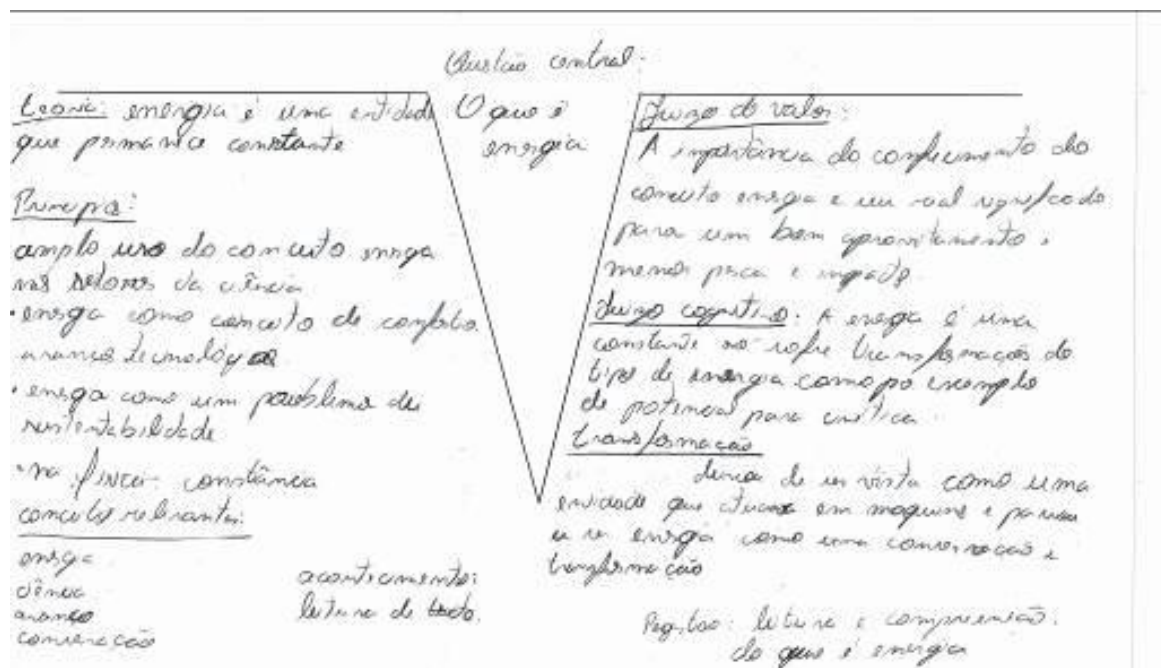 Questão central.
O que é
energia
Teoria: energia é uma entidade
que permanece constante
Principios:
amplo uso do conceito energia
nos setores da ciência
• energia como conceito de conforto
avanços tecnológicos
• energia como um problema de
sustentabilidade
• na física: constância
conceitos relevantes:
energia
ciência
avanço
conservação
acontecimento:
leitura de texto.
Juizo de valor:
A importância do conhecimento do
conceito energia e seu real significado
para um bom aproveitamento e
menos
Juizo cognitivo: A energia é uma
constante só sofre transformações do
tipo de energia como por exemplo
de potencial para cinética
transformação
deixa de ser vista como uma
entidade que atuava em maquina e
energia como uma conservação e
transformação
Registro: leitura e compreensão
do que é energia